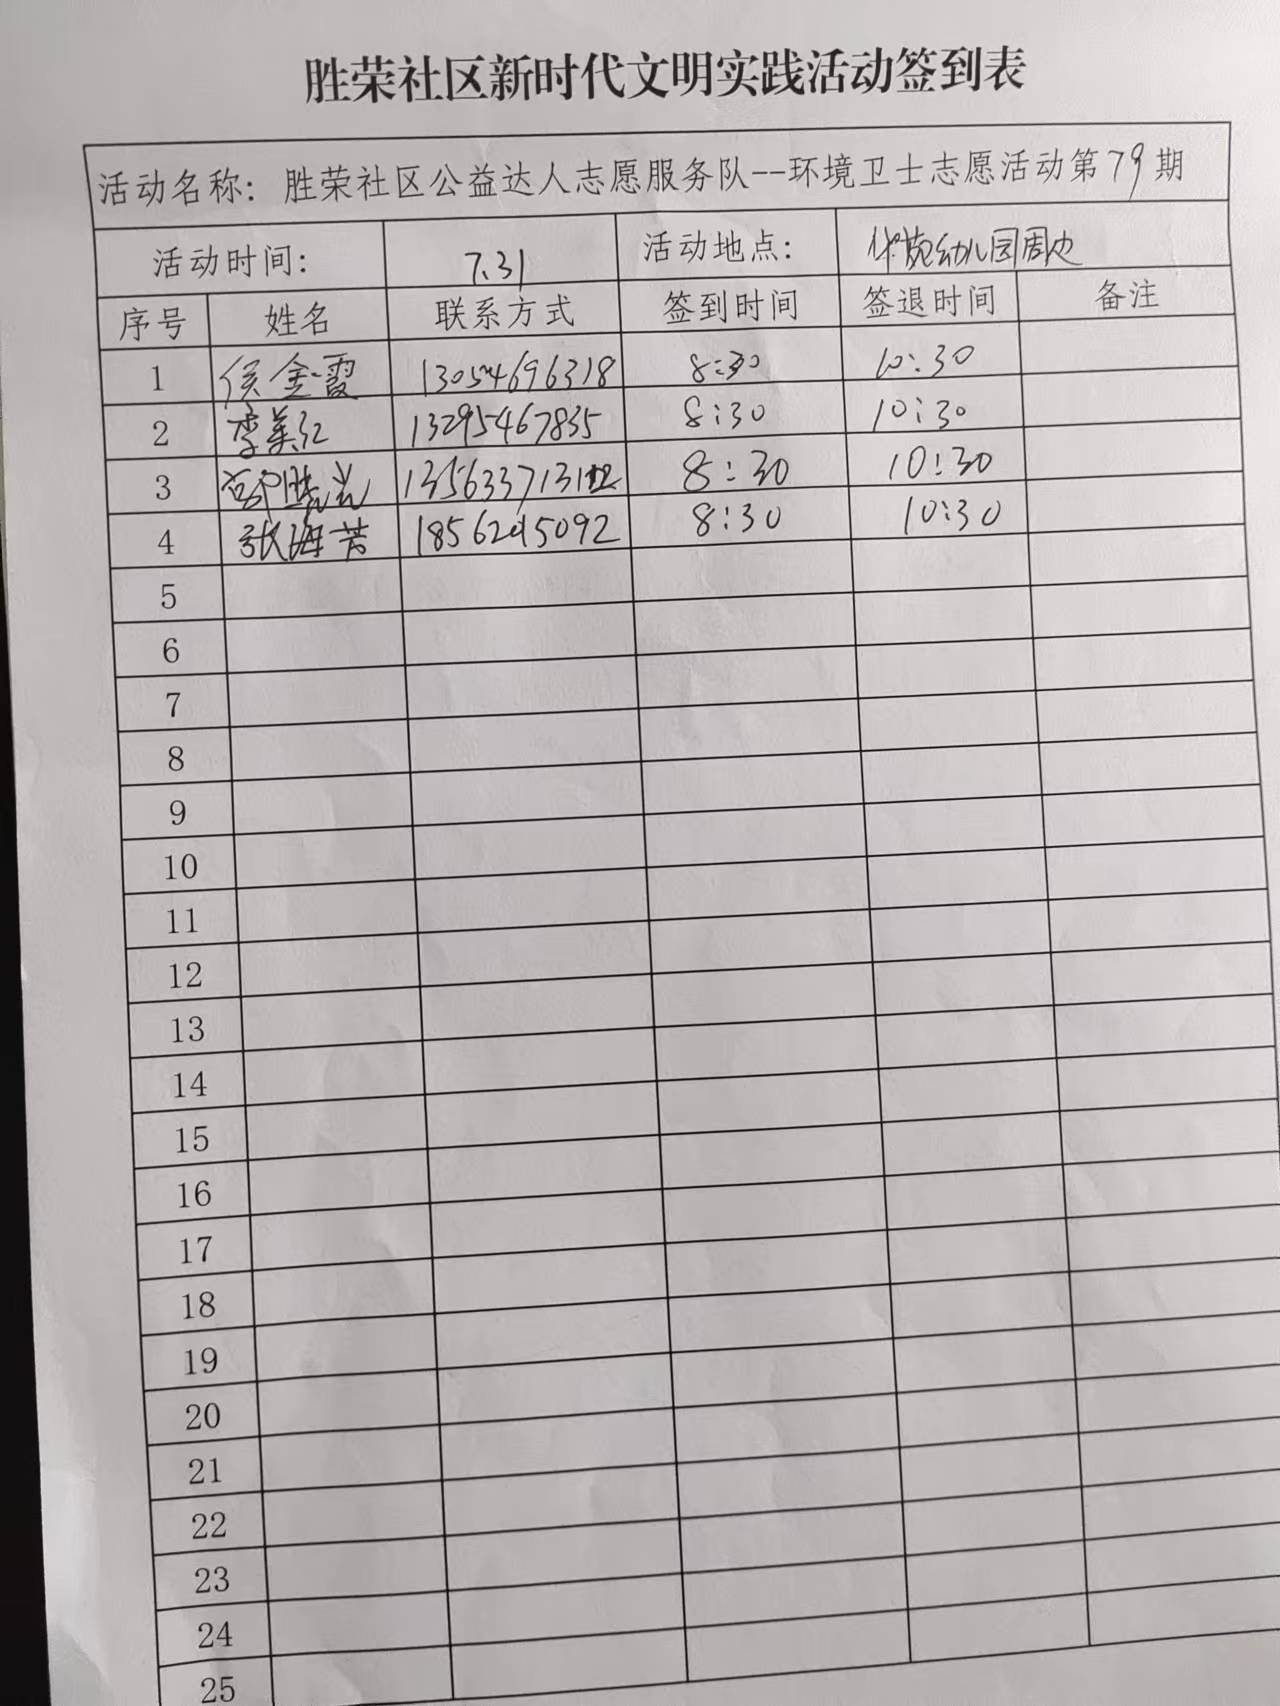 胜荣社区新时代文明实践活动签到表
活动名称: 胜荣社区公益达人志愿服务队--环境卫士志愿活动第79期
活动时间: 7.31 活动地点: 华苑幼儿园周边
序号 姓名 联系方式 签到时间 签退时间 备注
1 侯金霞 13054696318 8:30 10:30
2 李美红 13295467835 8:30 10:30
3 8:30 10:30
4 张海芳 8:30 10:30
5
6
7
8
9
10
11
12
13
14
15
16
17
18
19
20
21
22
23
24
25